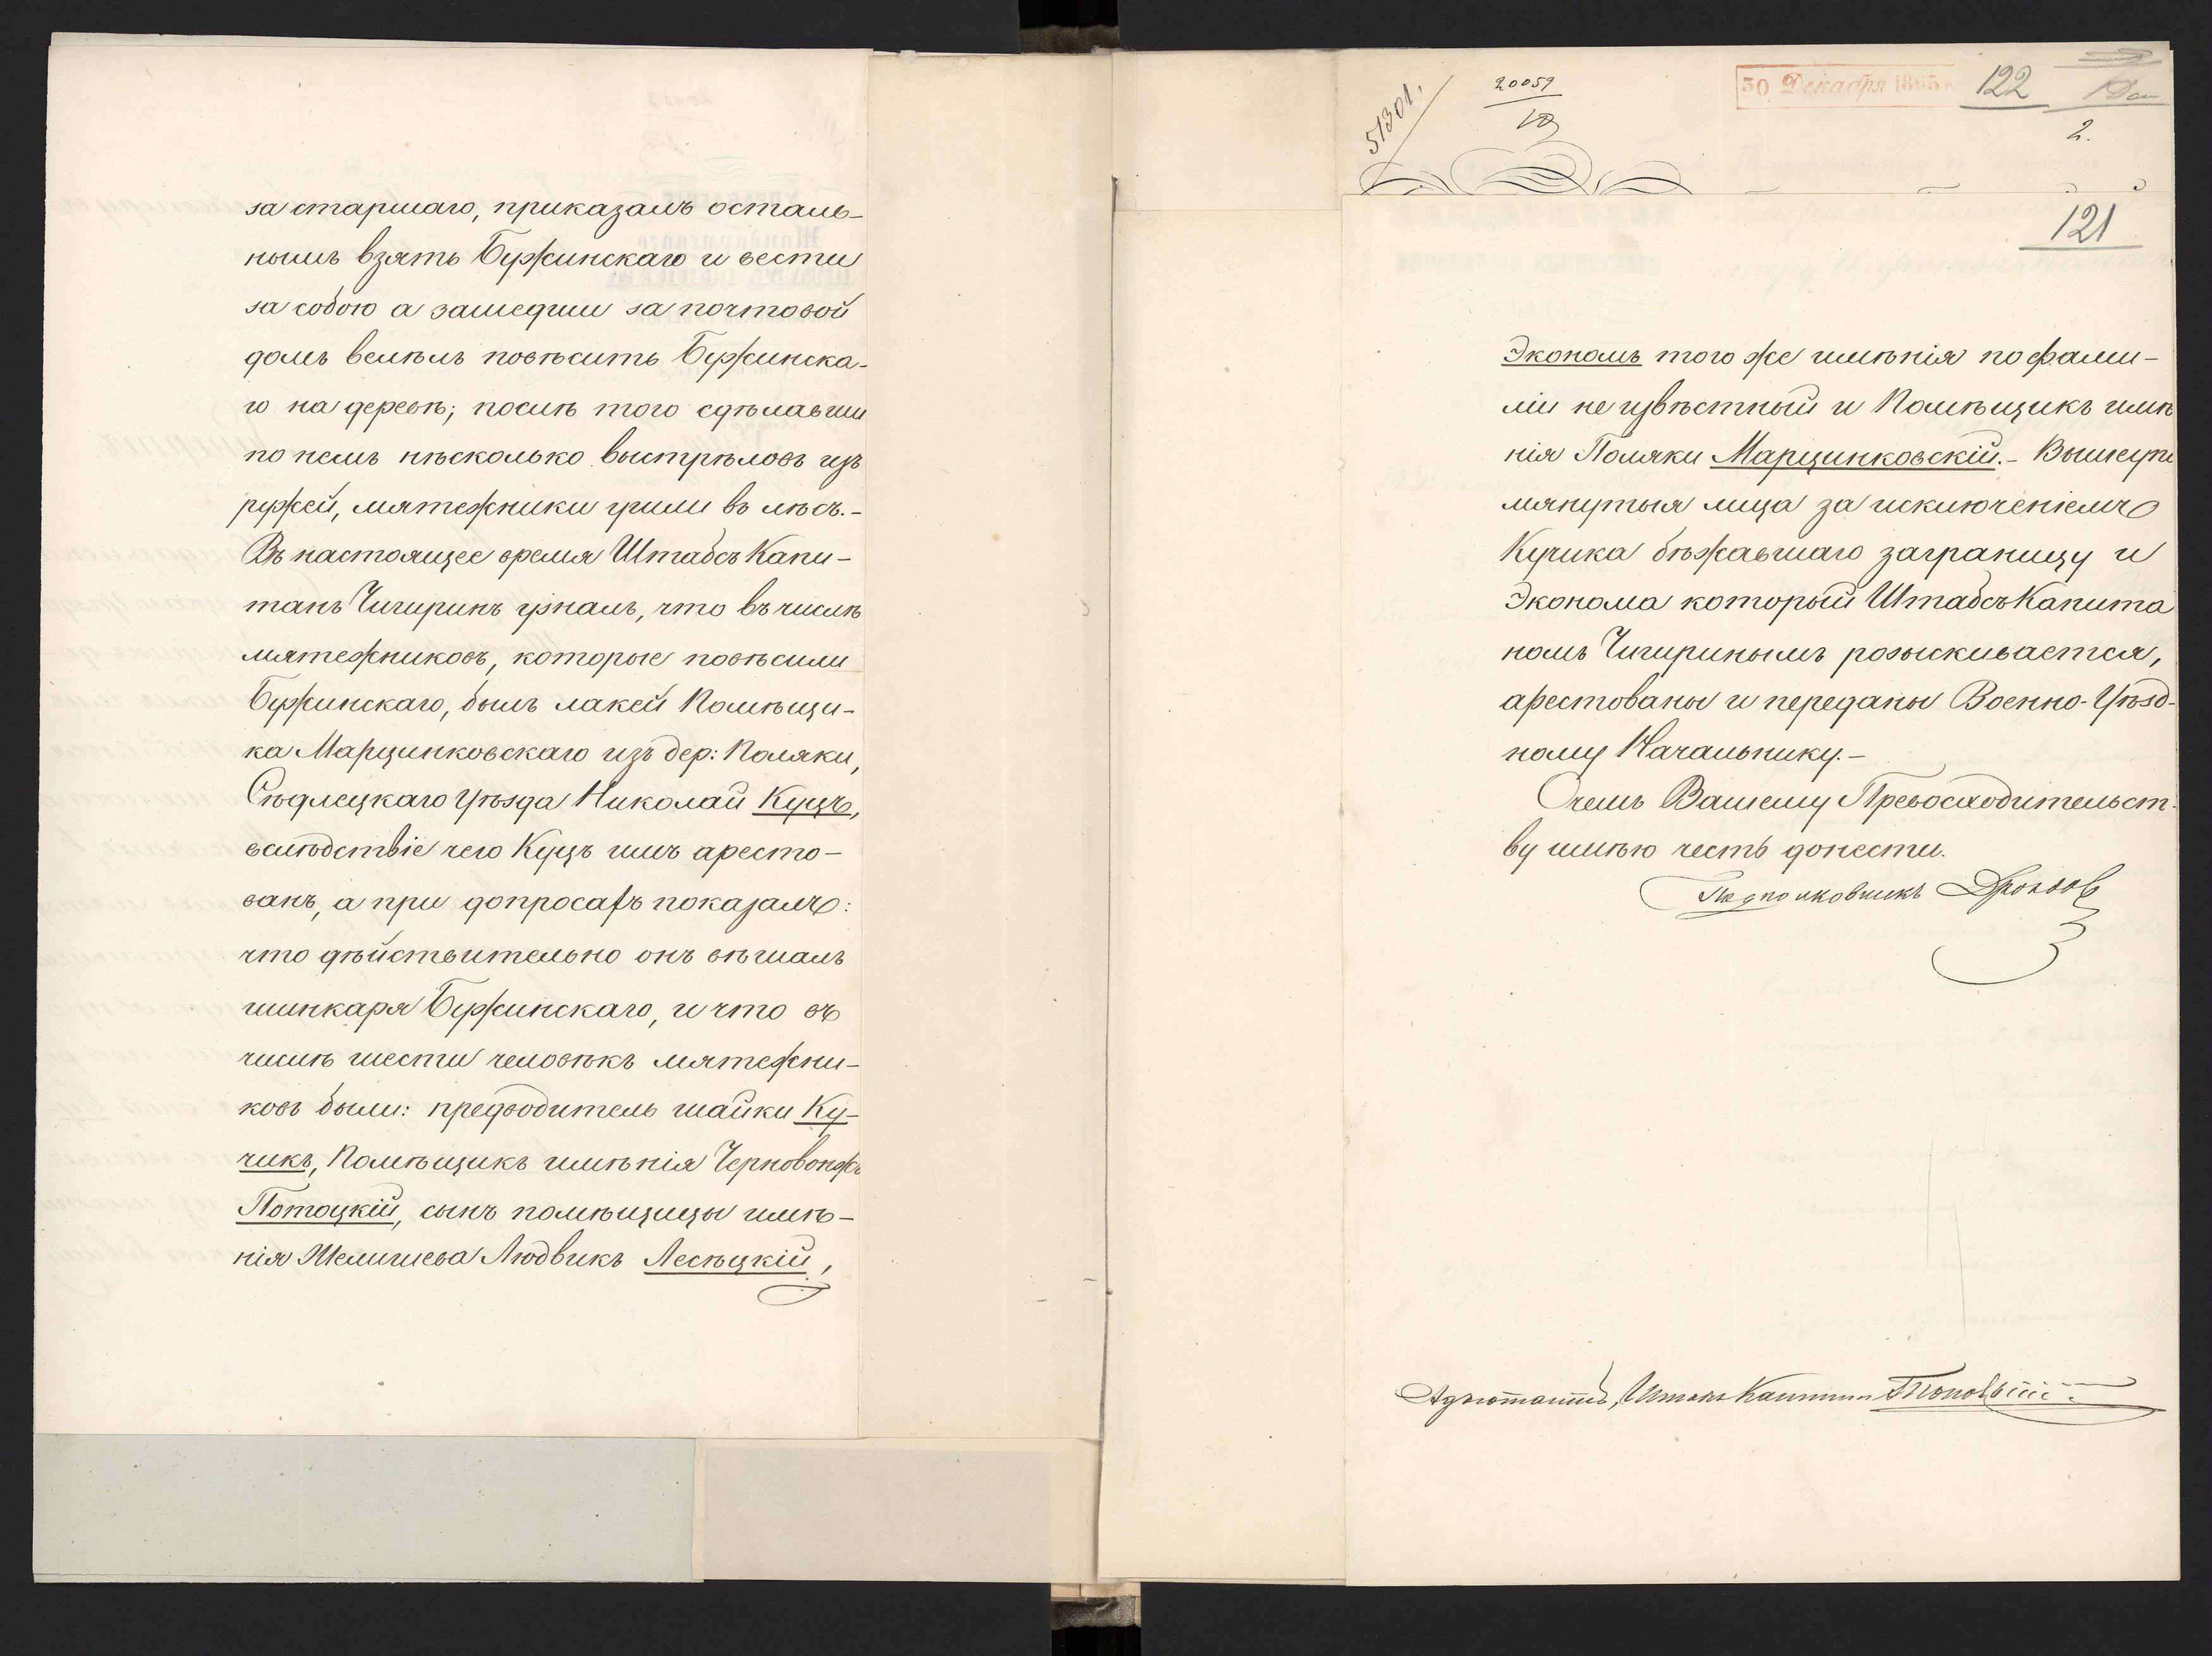 за старшаго, приказалъ осталь-
нымъ взять Бужинскаго и вести
за собою а зашедши за почтовой
домъ велѣлъ повѣсить Бужинска-
го на деревѣ; послѣ того сдѣлавши
по немъ нѣсколько выстрѣловъ изъ
ружей, мятежники ушли въ лѣсъ.-
Въ настоящее время Штабсъ Капи-
танъ Чигиринъ узналъ, что въ числѣ
мятежниковъ, которые повѣсили
Бужинскаго, былъ лакей Помѣщи-
ка Марцинковскаго изъ дер: Поляки,
Сѣдлецкаго уѣзда Николай Куцъ,
вслѣдствіе чего Куцъ имъ аресто-
ванъ, а при допросахъ показалъ:
что дѣйствительно онъ вѣшалъ
шинкаря Бужинскаго, и что въ
числѣ шести человѣкъ мятежни-
ковъ были: предводитель шайки Ку-
чикъ, Помѣщикъ имѣнія Черновонжъ
Потоцкій, сынъ помѣщицы имѣ-
нія Шелигиева Людвикъ Лесѣцкій,
51301.
20059
30 Декабря 1863
122
2.
121
Экономъ того же имѣнія по фами-
ліи не извѣстный и Помѣщикъ имѣ
нія Поляки Марцинковскій.- Вышеупо
мянутыя лица за исключеніемъ
Кучика бѣжавшаго заграницу и
Эконома который Штабсъ Капита
номъ Чигиринымъ розыскивается,
арестованы и переданы Военно-Уѣзд-
ному Начальнику.-
О чемъ Вашему Превосходительст-
ву имѣю честь донести.
Подполковникъ
Адъютантъ, Штабсъ Капитанъ